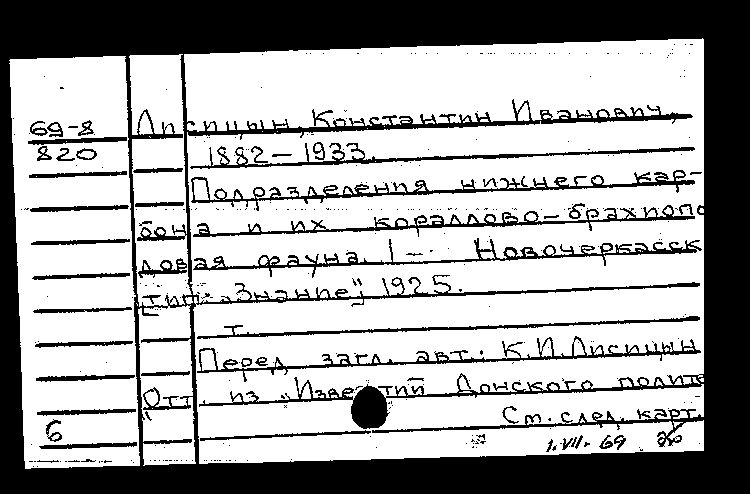 69-8 Лисицын, Константин Иванович,
820 1882-1933.
Подразделения нижнего кар-
бона и их кораллово-брахиопо
довая фауна. 1 - Новочеркасск
[тип. "Знание"] 1925.
т.
Перед загл. авт.: К.И.Лисицын
Отт. из "Известий Донского полите
6 См. след. карт.
1.VII-69